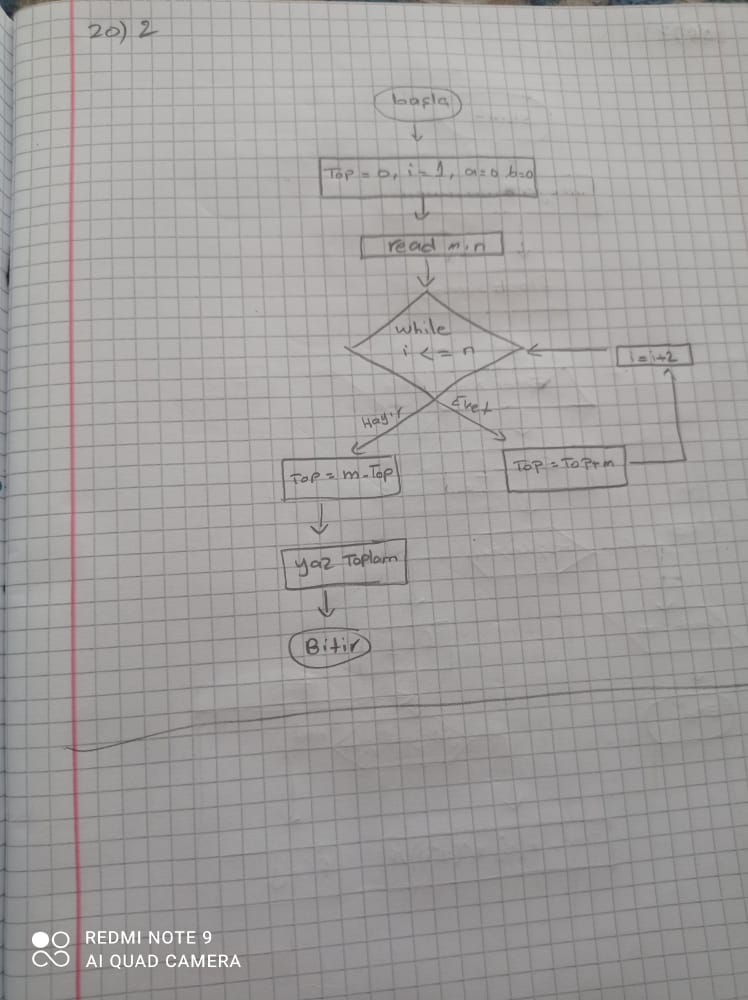 20) 2
başla
Top = 0, i = 1, a=0 b=0
read m,n
while
i <= n
i=i+2
Hayır
Evet
Top = m-Top
Top = Top+m
yaz Toplam
Bitir
REDMI NOTE 9
AI QUAD CAMERA